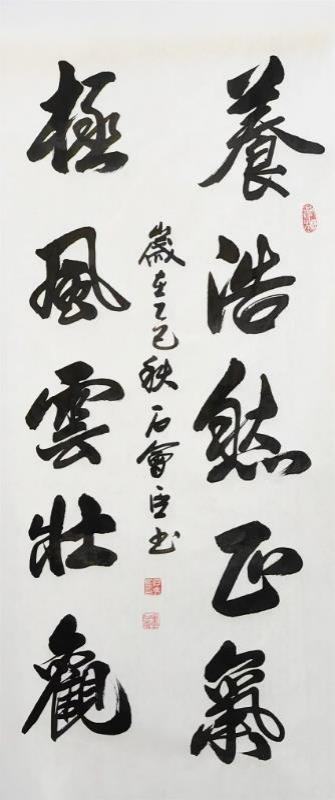 養浩然正氣
極風雲壯觀
歲在乙巳秋石會臣书